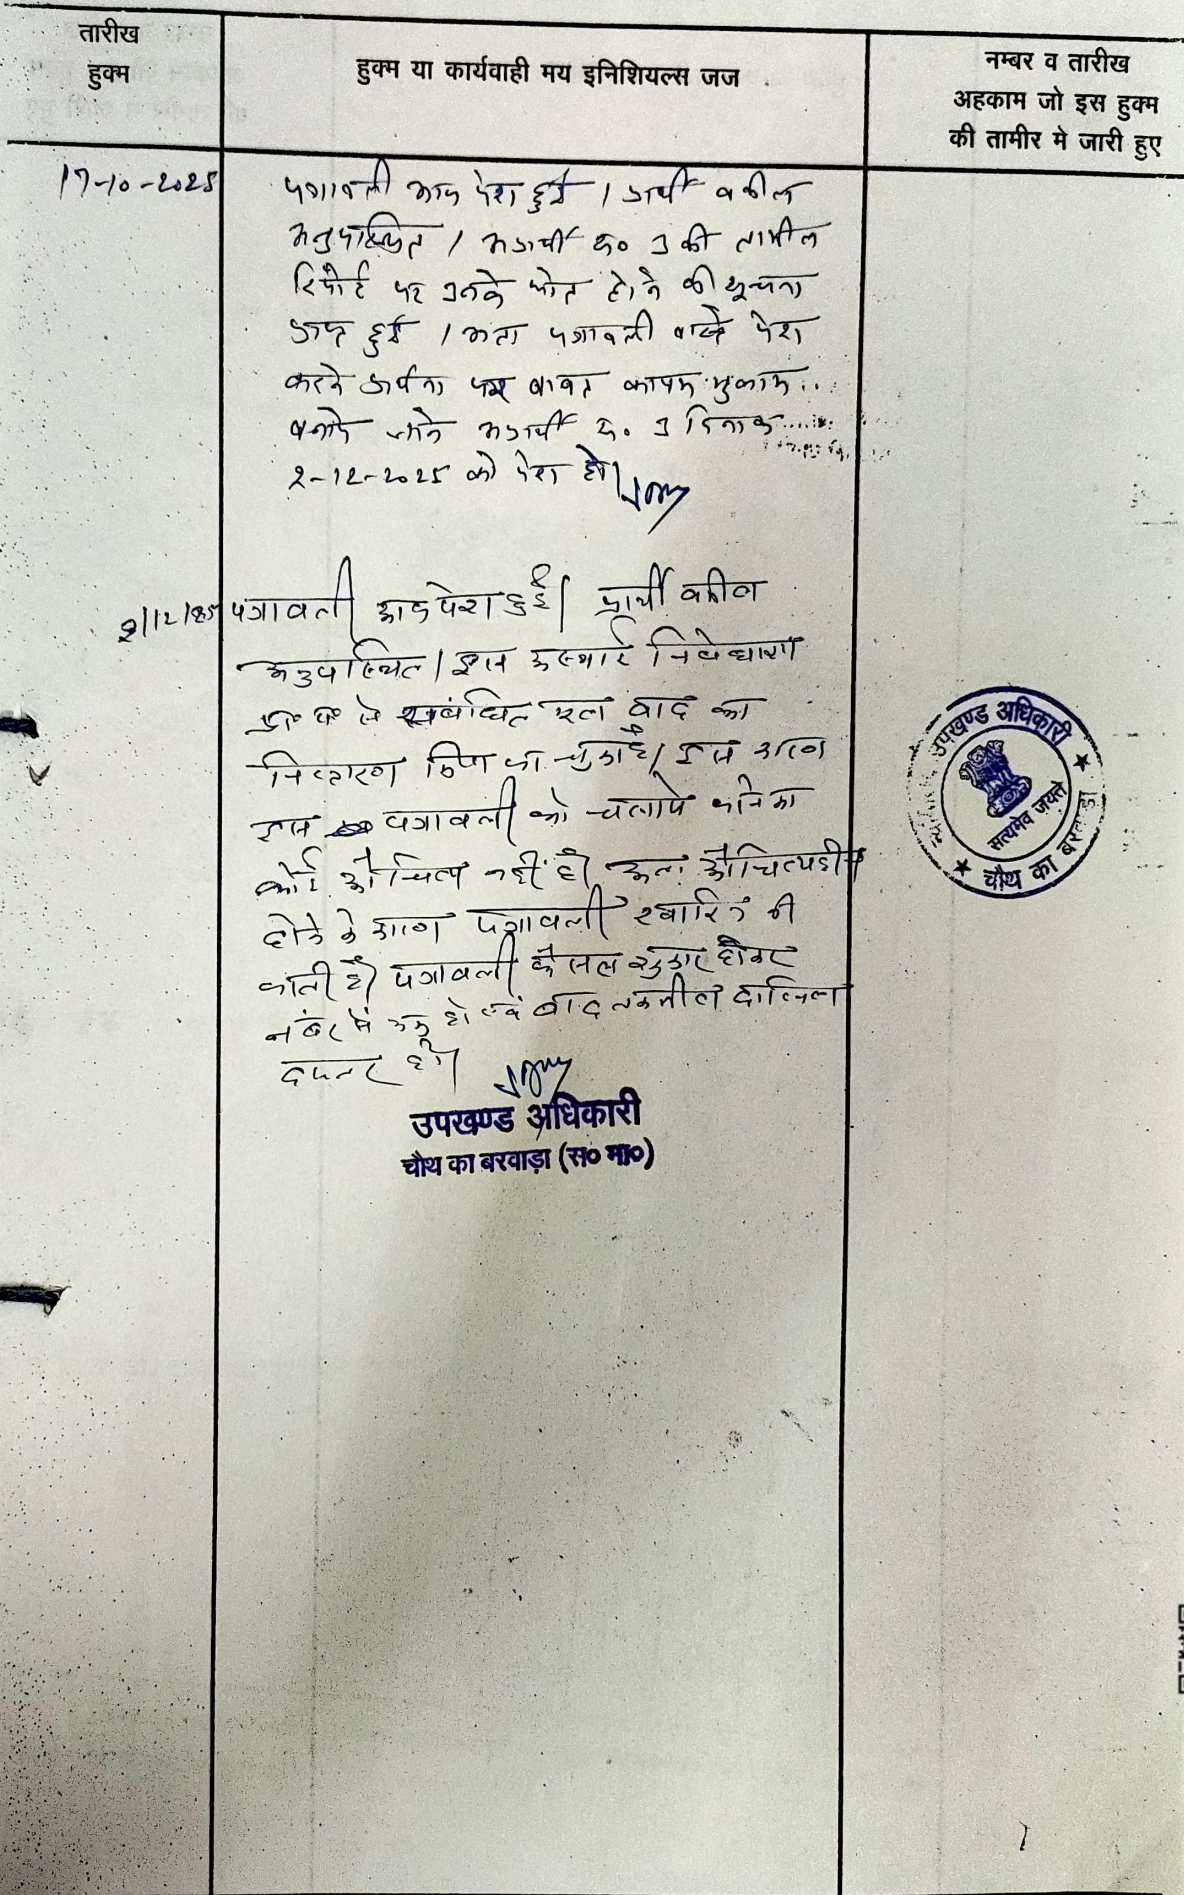 तारीख
हुक्म
हुक्म या कार्यवाही मय इनिशियल्स जज
नम्बर व तारीख
अहकाम जो इस हुक्म
की तामीर मे जारी हुए
17-10-2025
पत्रावली आज पेश हुई । प्रार्थी वकील
अनुपस्थित । अप्रार्थी सं० 3 की तामील
रिपोर्ट पर उनके फोत होने की सूचना
प्राप्त हुई । अतः पत्रावली वास्ते पेश
करने प्रार्थना पत्र बाबत कायम मुकाम
बनाये जाने अप्रार्थी सं. 3 दिनांक
2-12-2025 को पेश हो।
2/12/25
पत्रावली आज पेश हुई। प्रार्थी वकील
अनुपस्थित। इस अस्थाई निषेधाज्ञा
प्रा० प० से संबंधित मूल वाद का
निस्तारण किया जा चुका है। इस कारण
इस पत्रावली को चलाये जाने का
कोई औचित्य नहीं है। अतः औचित्यहीन
होने के कारण पत्रावली खारिज की
जाती है। पत्रावली फैसल शुमार होकर
नंबर से कम हो एवं बाद तकमील दाखिल
दफ्तर हो।
उपखण्ड अधिकारी
चौथ का बरवाड़ा (स० मा०)
उपखण्ड अधिकारी
सत्यमेव जयते
चौथ का बरवाड़ा